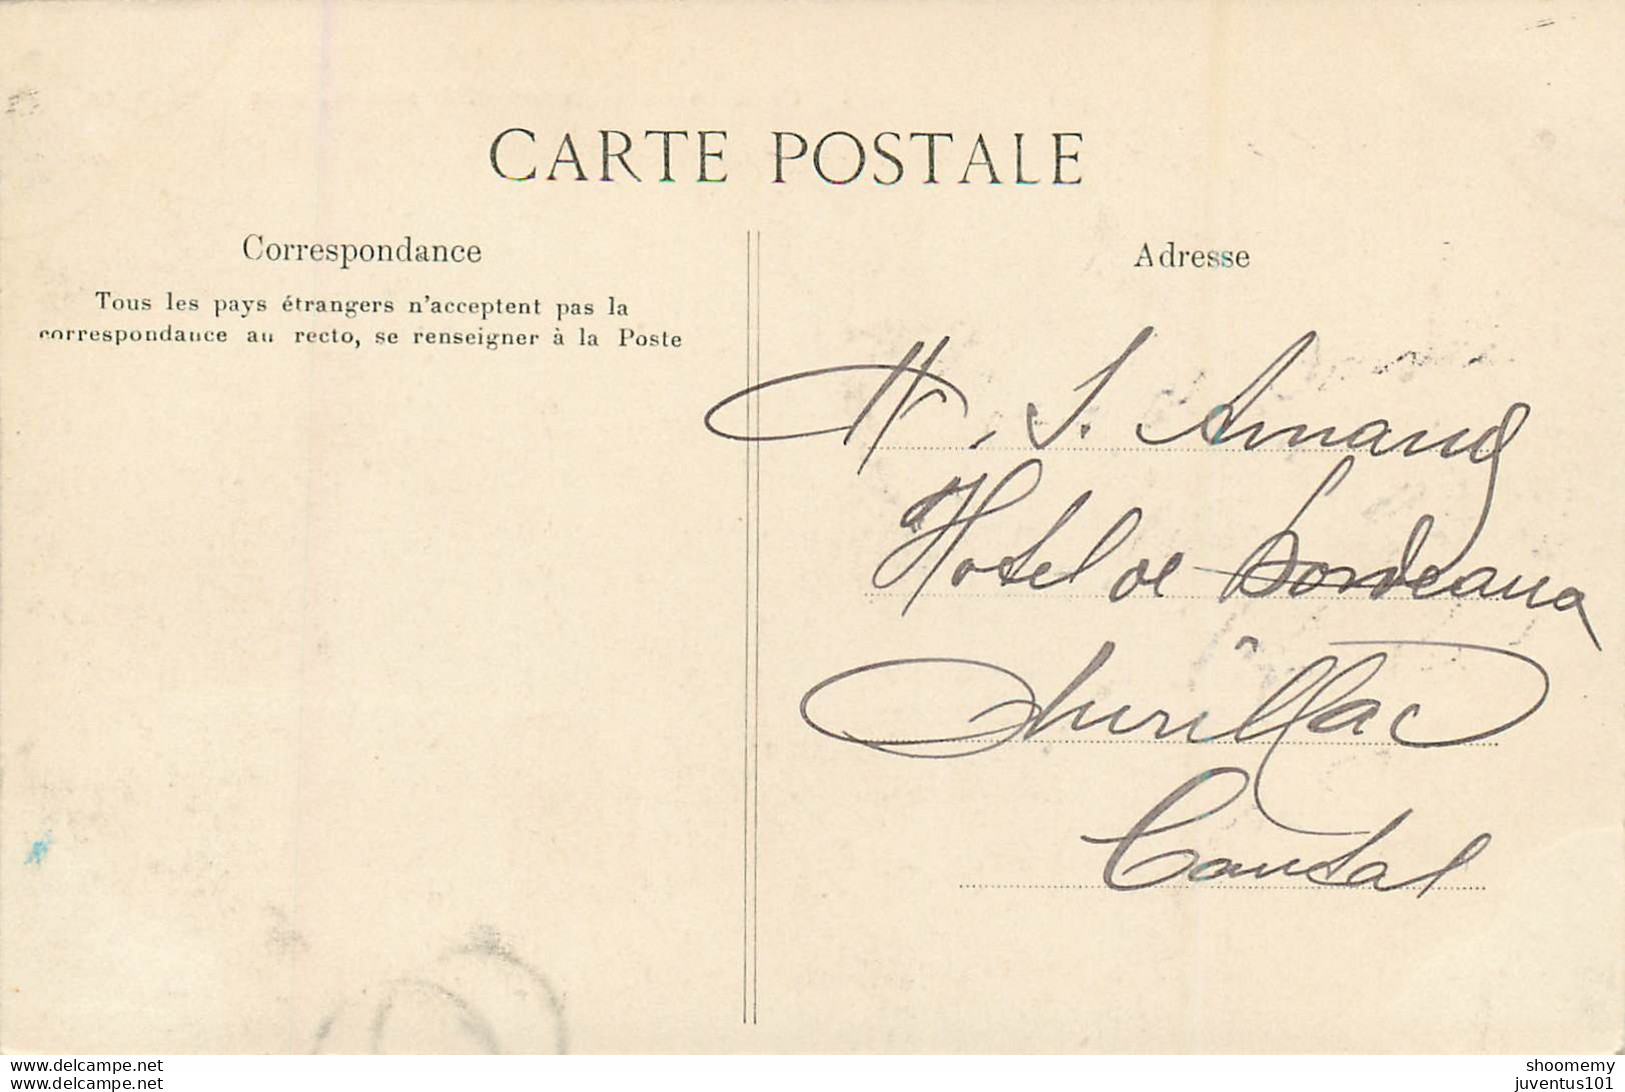 CARTE POSTALE
Correspondance
Tous les pays étrangers n'acceptent pas la
correspondance au recto, se renseigner à la Poste
Adresse
M. J. Arnaud
Hotel de Bordeaux
Aurillac
Cantal
www.delcampe.net
www.delcampe.net
shoomemy
juventus101